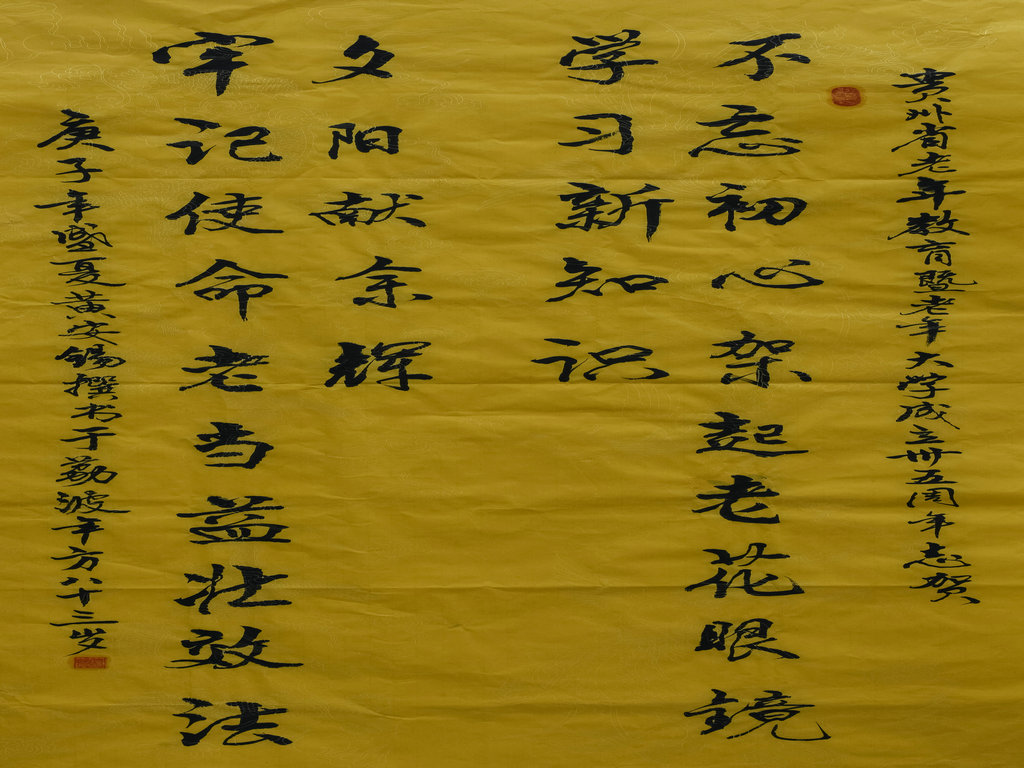 贵州省老年教育暨老年大学成立卅五周年志贺
不忘初心架起老花眼镜
学习新知识
夕阳献余辉
牢记使命老当益壮效法
庚子年盛夏黄安锡撰书于荔波年方八十三岁